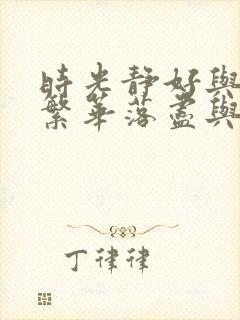 時光靜好與
繁華落盡與
丁律律